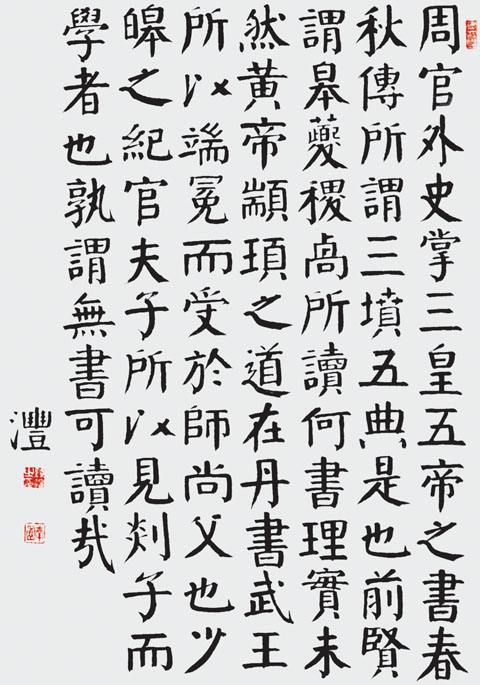 周官外史掌三皇五帝之書春
秋傳所謂三墳五典是也前賢
謂皋夔稷卨所讀何書理實未
然黃帝顓頊之道在丹書武王
所以端冕而受於師尚父也少
皞之紀官夫子所以見剡子而
學者也孰謂無書可讀哉
灃